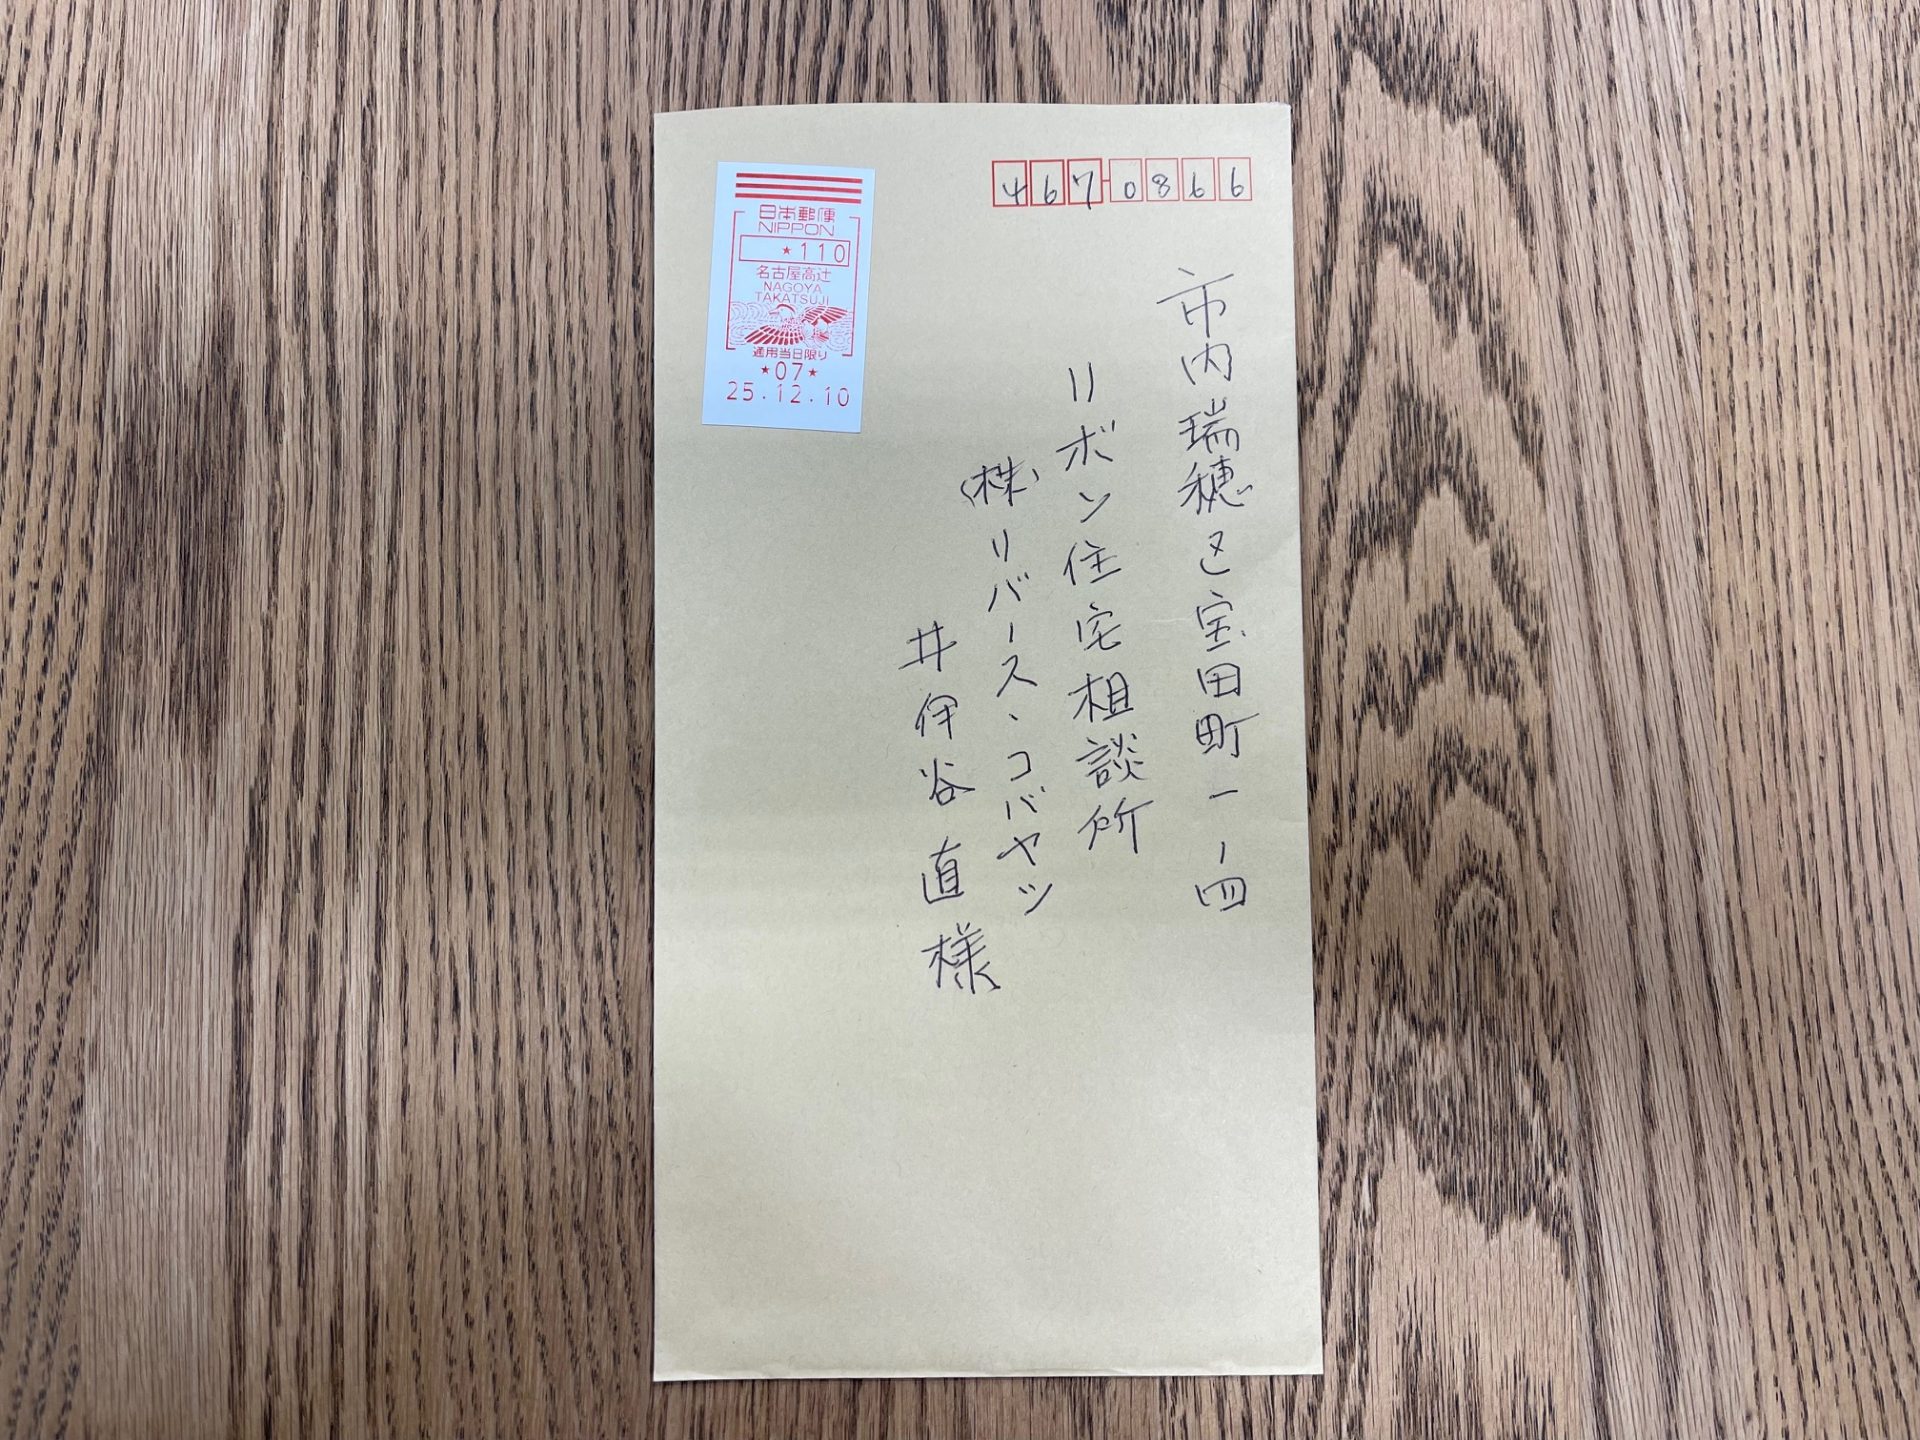 467-0866
市内瑞穂区宝田町一ー四
リボン住宅相談所
(株)リバース、コバヤシ
井伊谷直様
日本郵便
NIPPON
★110
名古屋高辻
NAGOYA
TAKATSUJI
通用当日限り
★07★
25.12.10